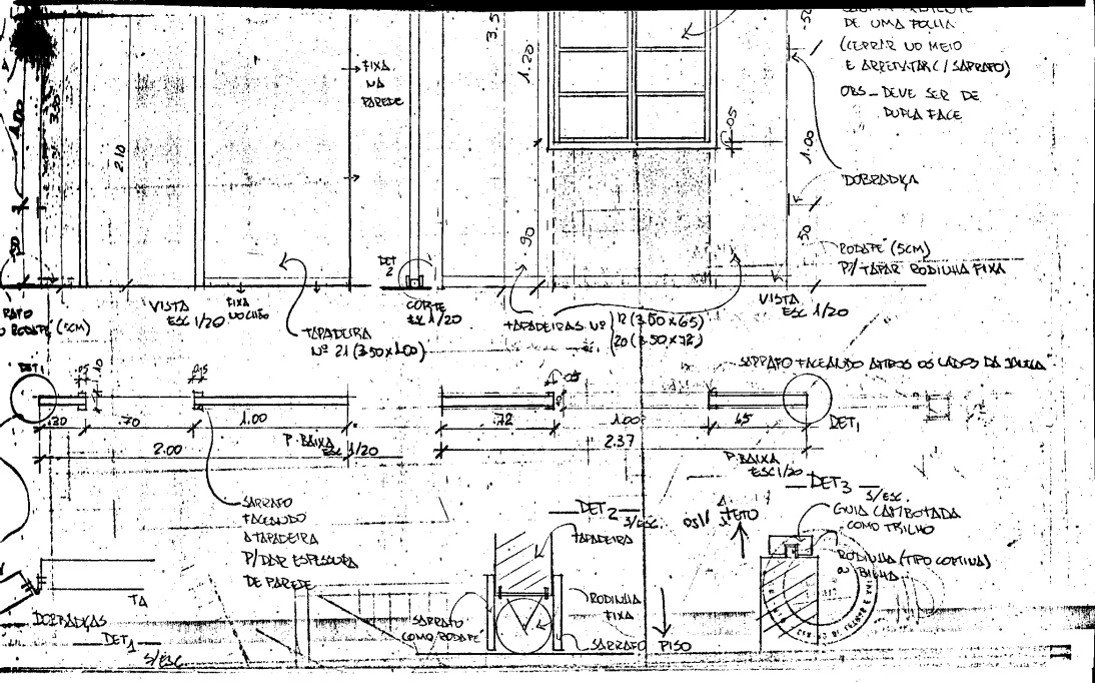 DE UMA FOLHA
(CERRAR NO MEIO
E ARREMATAR C/ SARRAFO)
OBS - DEVE SER DE
DUPLA FACE
3.5
1.20
.50
.05
1.00
FIXA
NA
PAREDE
1.00
3.50
2.10
DOBRADIÇA
.90
.50
.50
RODAPÉ (5CM)
P/ TAPAR RODINHA FIXA
DET
2
VISTA
ESC 1/20
FIXA
NO CHÃO
CORTE
ESC 1/20
VISTA
ESC 1/20
RODAPÉ (5CM)
TAPADEIRA
Nº 21 (3.50x1.00)
TAPADEIRAS Nº
12 (3.00x65)
20 (3.50x72)
SARRAFO FACEANDO AMBOS OS LADOS DA
DET1
.05
.20
.70
1.00
2.00
P. BAIXA
ESC 1/20
.72
1.00
.65
2.37
P. BAIXA
ESC 1/20
DET1
SARRAFO
FACEANDO
A TAPADEIRA
P/ DAR ESPESSURA
DE PAREDE
DET2
S/ESC.
TAPADEIRA
TETO
DET3
S/ESC.
GUIA CAMBOTADA
COMO TRILHO
RODINHA (TIPO CORTINA)
RODINHA
FIXA
SARRAFO
COMO RODAPÉ
SARRAFO
PISO
TA
DOBRADIÇAS
DET1
S/ESC